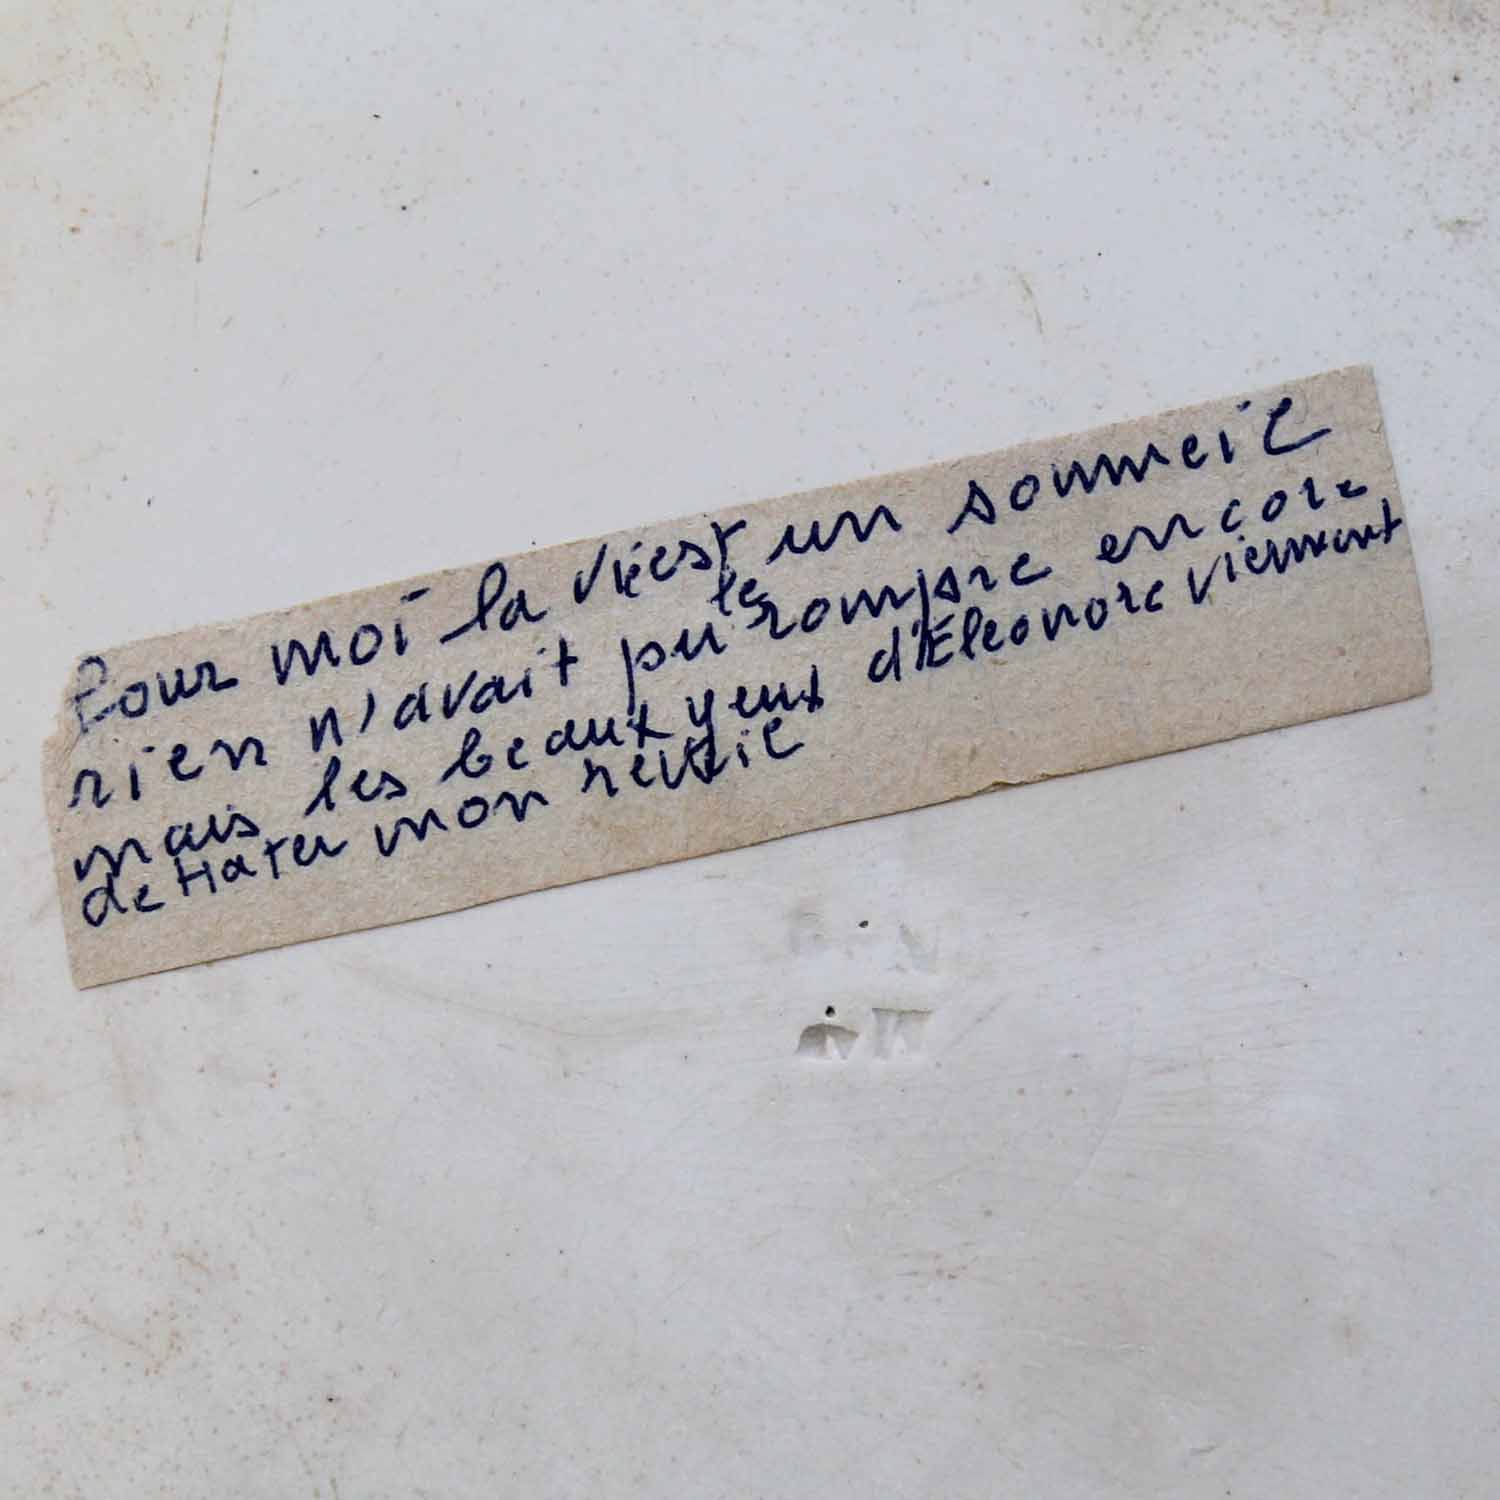 Pour moi la vie est un sommeil
rien n'avait pu le rompre encore,
mais les beaux yeux d'Eleonore viennent
de Hater mon reveil